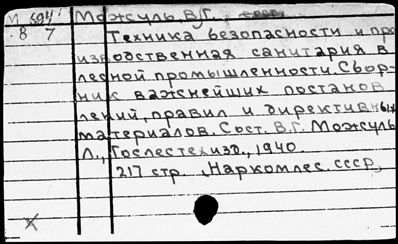 М 694 Можсуль, В.Г., сост.
8 7 Техника безопасности и про
изводственная санитария в
лесной промышленности. Сбор-
ник важнейших постанов
лений, правил и директивных
материалов. Сост. В.Г. Можсуль
Л., Гослестехизд., 1940.
217 стр. Наркомлес. СССР,
х